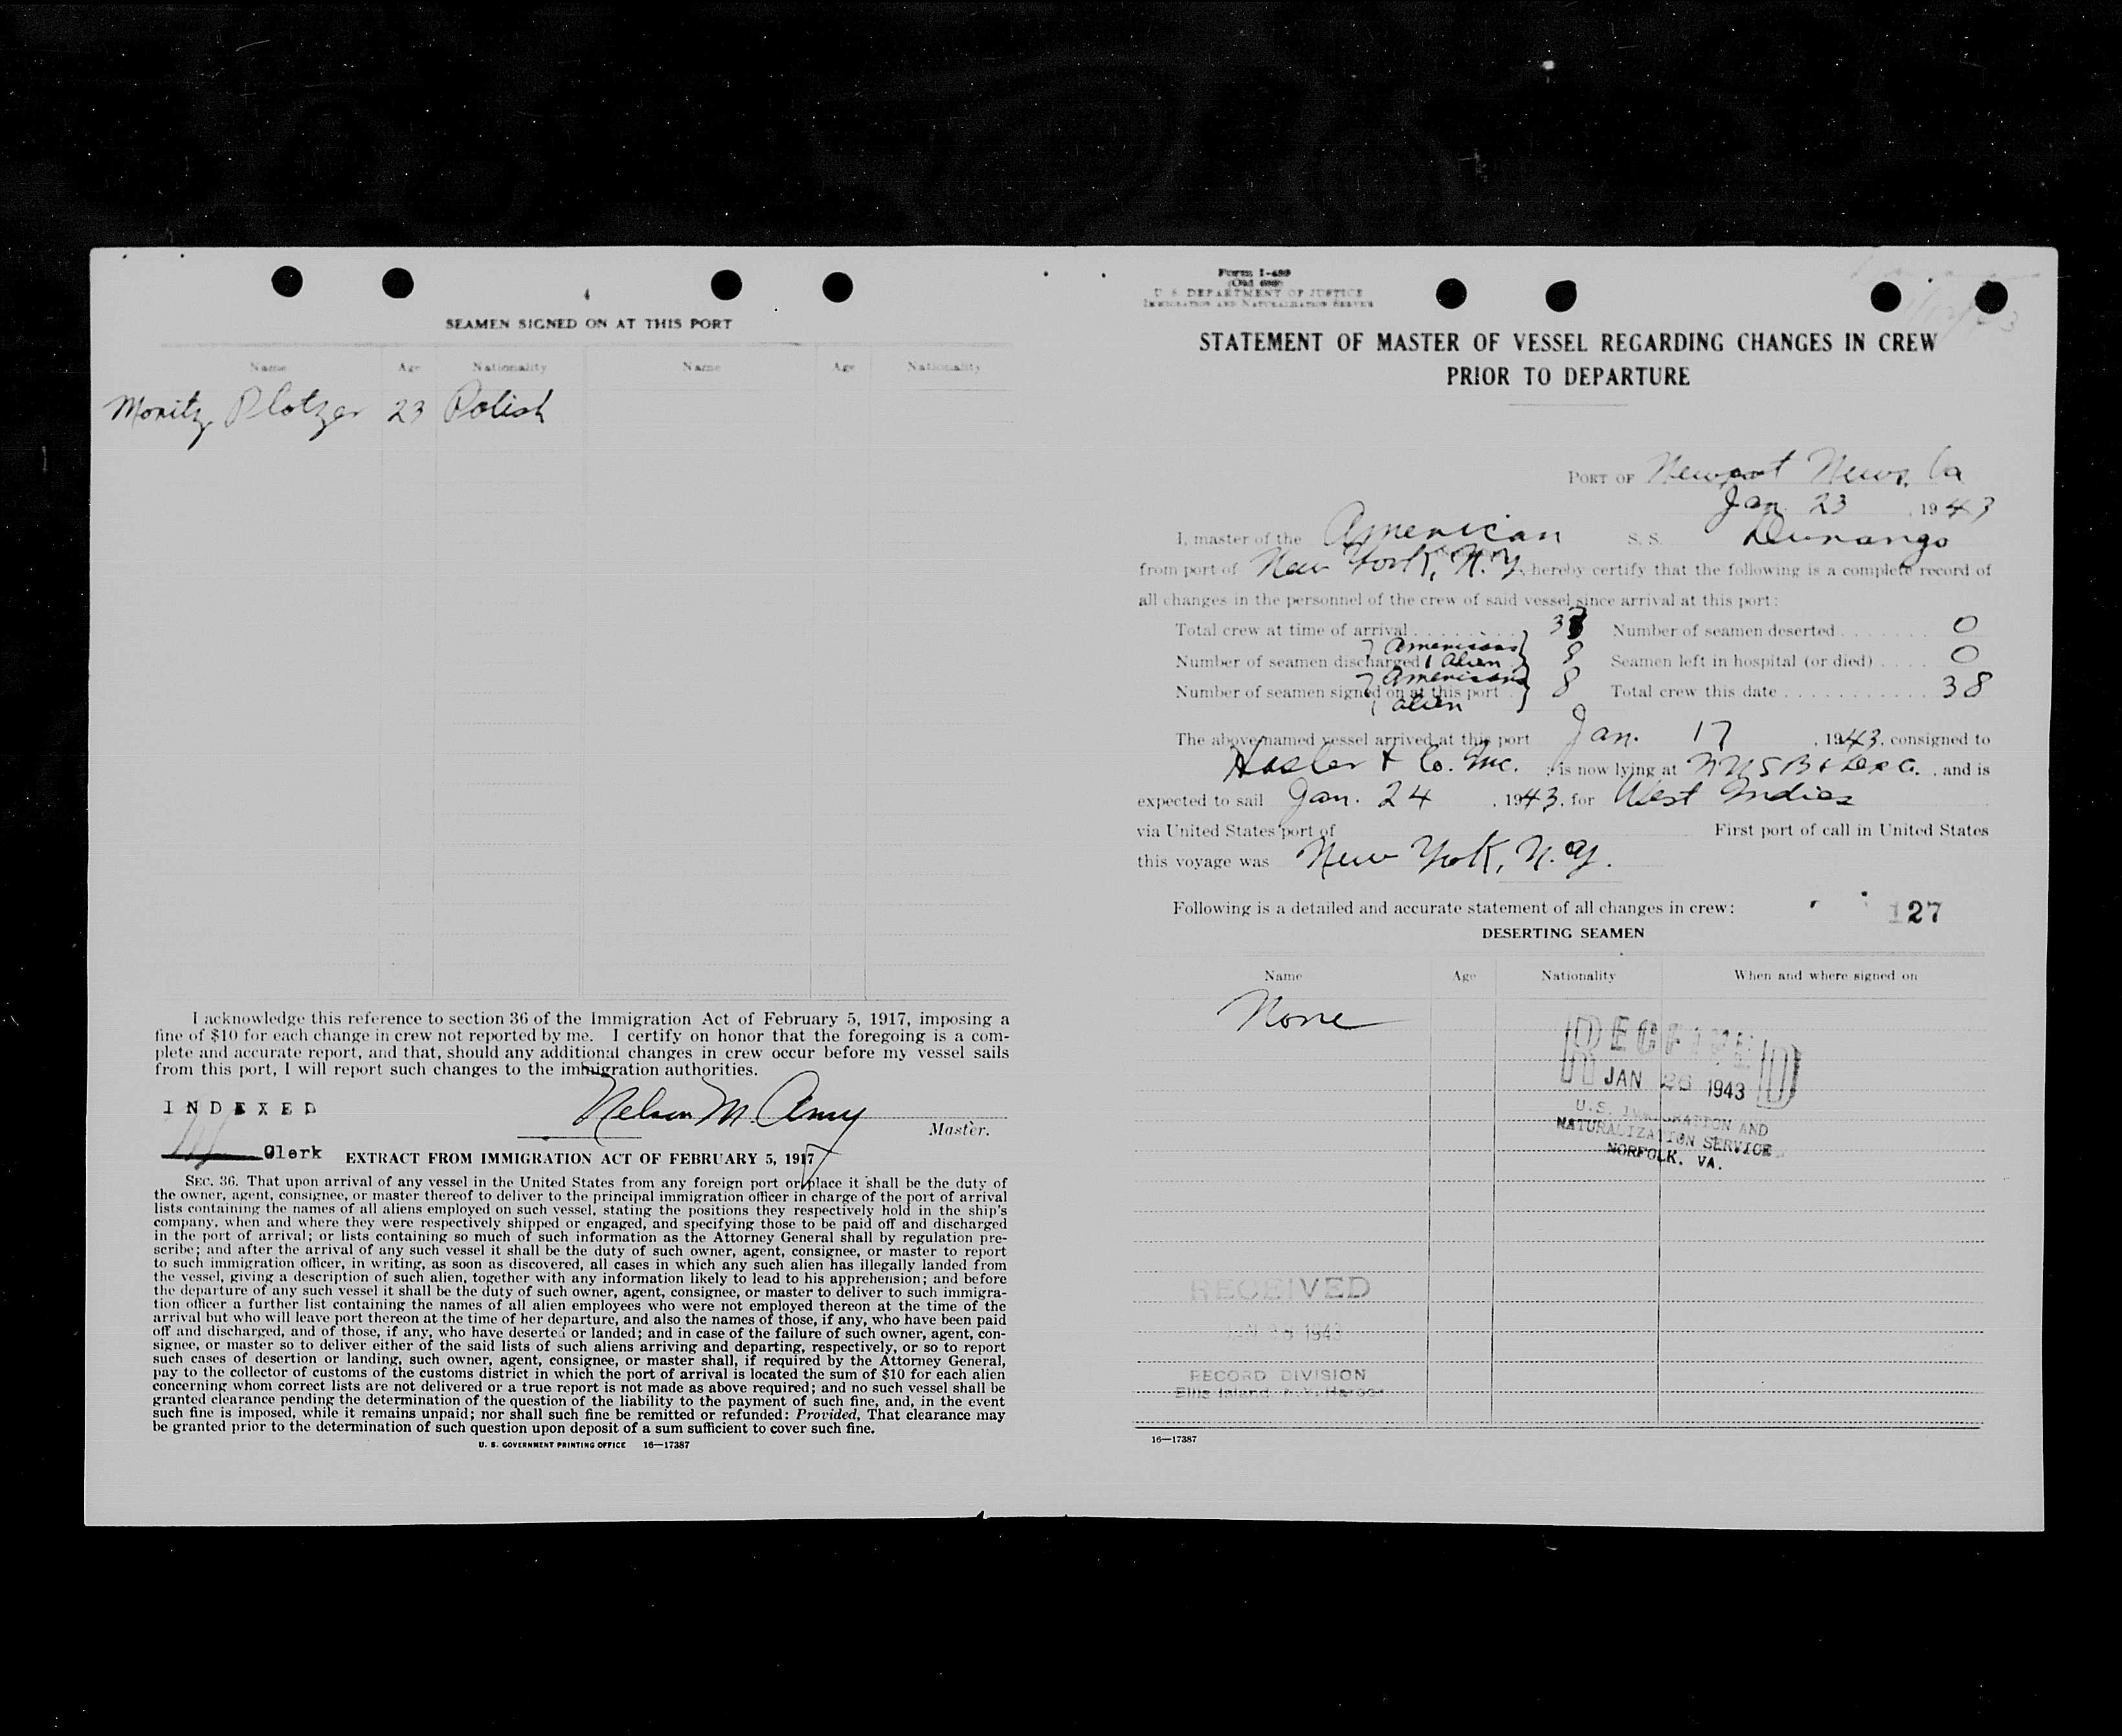 4
SEAMEN SIGNED ON AT THIS PORT
Name Age Nationality Name Age Nationality
Moritz Plotzer 23 Polish
I acknowledge this reference to section 36 of the Immigration Act of February 5, 1917, imposing a
fine of $10 for each change in crew not reported by me. I certify on honor that the foregoing is a com-
plete and accurate report, and that, should any additional changes in crew occur before my vessel sails
from this port, I will report such changes to the immigration authorities.
INDEXED
Nelson M. Amy
Master.
Clerk
EXTRACT FROM IMMIGRATION ACT OF FEBRUARY 5, 1917
SEC. 36. That upon arrival of any vessel in the United States from any foreign port or place it shall be the duty of
the owner, agent, consignee, or master thereof to deliver to the principal immigration officer in charge of the port of arrival
lists containing the names of all aliens employed on such vessel, stating the positions they respectively hold in the ship's
company, when and where they were respectively shipped or engaged, and specifying those to be paid off and discharged
in the port of arrival; or lists containing so much of such information as the Attorney General shall by regulation pre-
scribe; and after the arrival of any such vessel it shall be the duty of such owner, agent, consignee, or master to report
to such immigration officer, in writing, as soon as discovered, all cases in which any such alien has illegally landed from
the vessel, giving a description of such alien, together with any information likely to lead to his apprehension; and before
the departure of any such vessel it shall be the duty of such owner, agent, consignee, or master to deliver to such immigra-
tion officer a further list containing the names of all alien employees who were not employed thereon at the time of the
arrival but who will leave port thereon at the time of her departure, and also the names of those, if any, who have been paid
off and discharged, and of those, if any, who have deserted or landed; and in case of the failure of such owner, agent, con-
signee, or master so to deliver either of the said lists of such aliens arriving and departing, respectively, or so to report
such cases of desertion or landing, such owner, agent, consignee, or master shall, if required by the Attorney General,
pay to the collector of customs of the customs district in which the port of arrival is located the sum of $10 for each alien
concerning whom correct lists are not delivered or a true report is not made as above required; and no such vessel shall be
granted clearance pending the determination of the question of the liability to the payment of such fine, and, in the event
such fine is imposed, while it remains unpaid; nor shall such fine be remitted or refunded: Provided, That clearance may
be granted prior to the determination of such question upon deposit of a sum sufficient to cover such fine.
U. S. GOVERNMENT PRINTING OFFICE 16—17387
Form I-489
(Old 689)
U. S. DEPARTMENT OF JUSTICE
IMMIGRATION AND NATURALIZATION SERVICE
STATEMENT OF MASTER OF VESSEL REGARDING CHANGES IN CREW
PRIOR TO DEPARTURE
PORT OF Newport News, Va
Jan. 23, 1943
I, master of the American S. S. Durango
from port of New York, N.Y., hereby certify that the following is a complete record of
all changes in the personnel of the crew of said vessel since arrival at this port:
Total crew at time of arrival Number of seamen deserted 0
7 Americans
Number of seamen discharged 1 Alien 8 Seamen left in hospital (or died) 0
7 Americans
Number of seamen signed on at this port 8 Total crew this date 38
1 alien
The above-named vessel arrived at this port Jan. 17, 1943, consigned to
Hasler & Co. Inc.; is now lying at and is
expected to sail Jan. 24, 1943, for West Indies
via United States port of First port of call in United States
this voyage was New York, N.Y.
Following is a detailed and accurate statement of all changes in crew: 127
DESERTING SEAMEN
Name Age Nationality When and where signed on
None
RECEIVED
JAN 26 1943
U.S. IMMIGRATION AND
NATURALIZATION SERVICE
NORFOLK, VA.
RECEIVED
1943
RECORD DIVISION
Ellis Island, N.Y. Harbor
16—17387